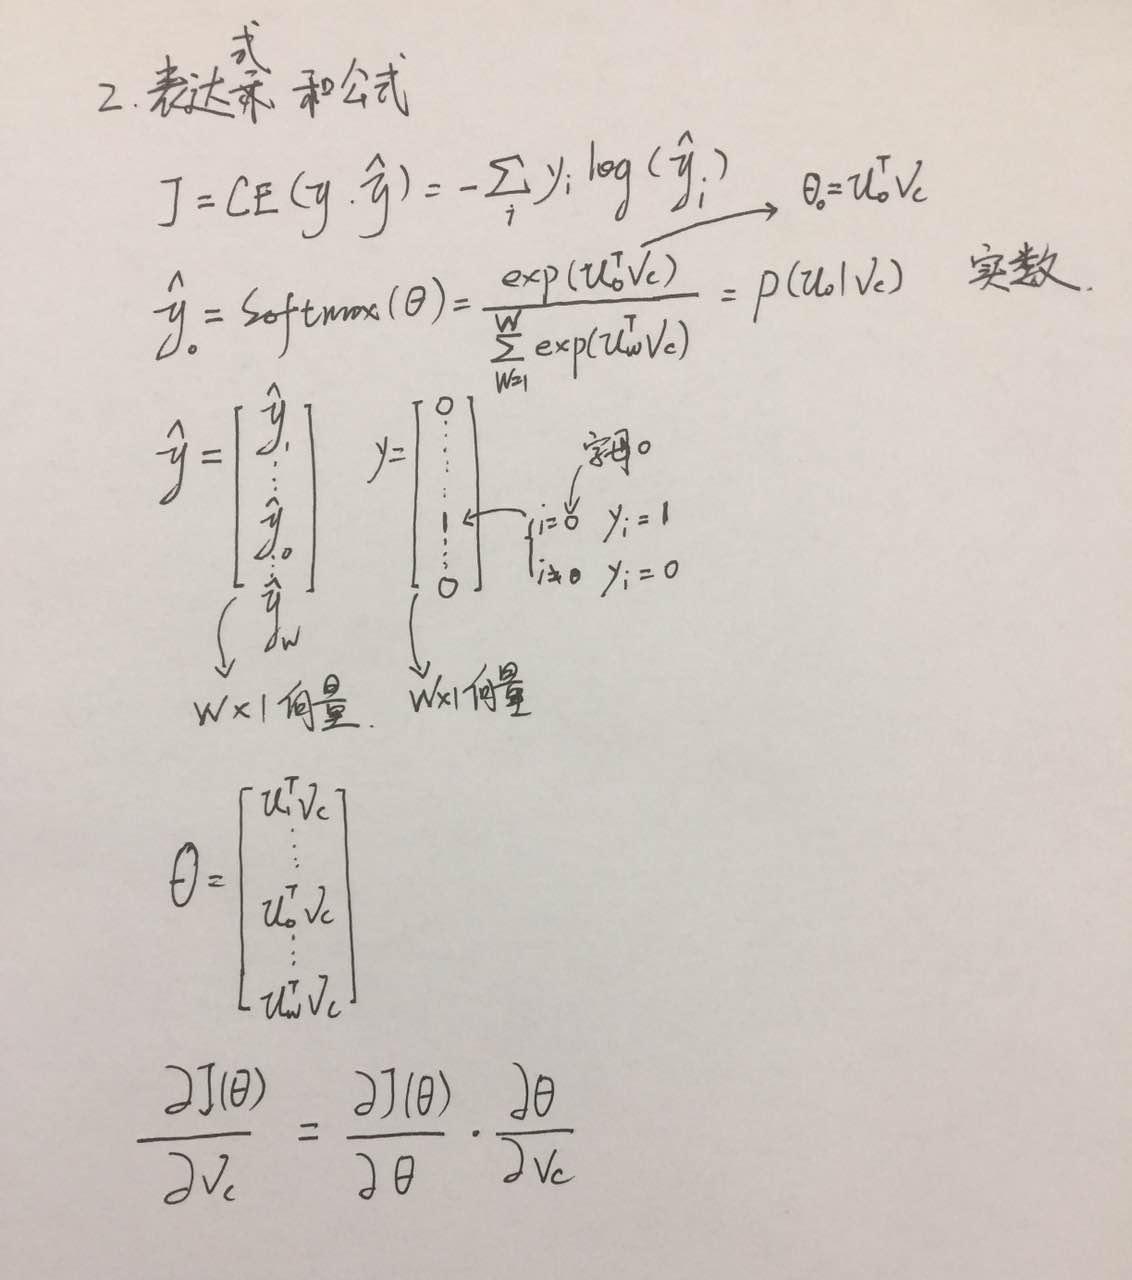 2. 表达式 和公式
J = CE(y . ŷ) = -∑_i y_i log(ŷ_i)
θ_o = u_o^T V_c
ŷ_o = Softmax(θ) = exp(u_o^T V_c) / ∑_{W=1}^{W} exp(u_w^T V_c) = p(u_o|V_c) 实数.
ŷ = [ŷ_1 ⋮ ŷ_o ⋮ ŷ_W] y = [0 ⋮ 1 ⋮ 0]
字母o
i=o y_i = 1
i≠o y_i = 0
W×1向量. W×1向量
θ = [u_1^T V_c ⋮ u_o^T V_c ⋮ u_w^T V_c]
∂J(θ)/∂V_c = ∂J(θ)/∂θ · ∂θ/∂V_c